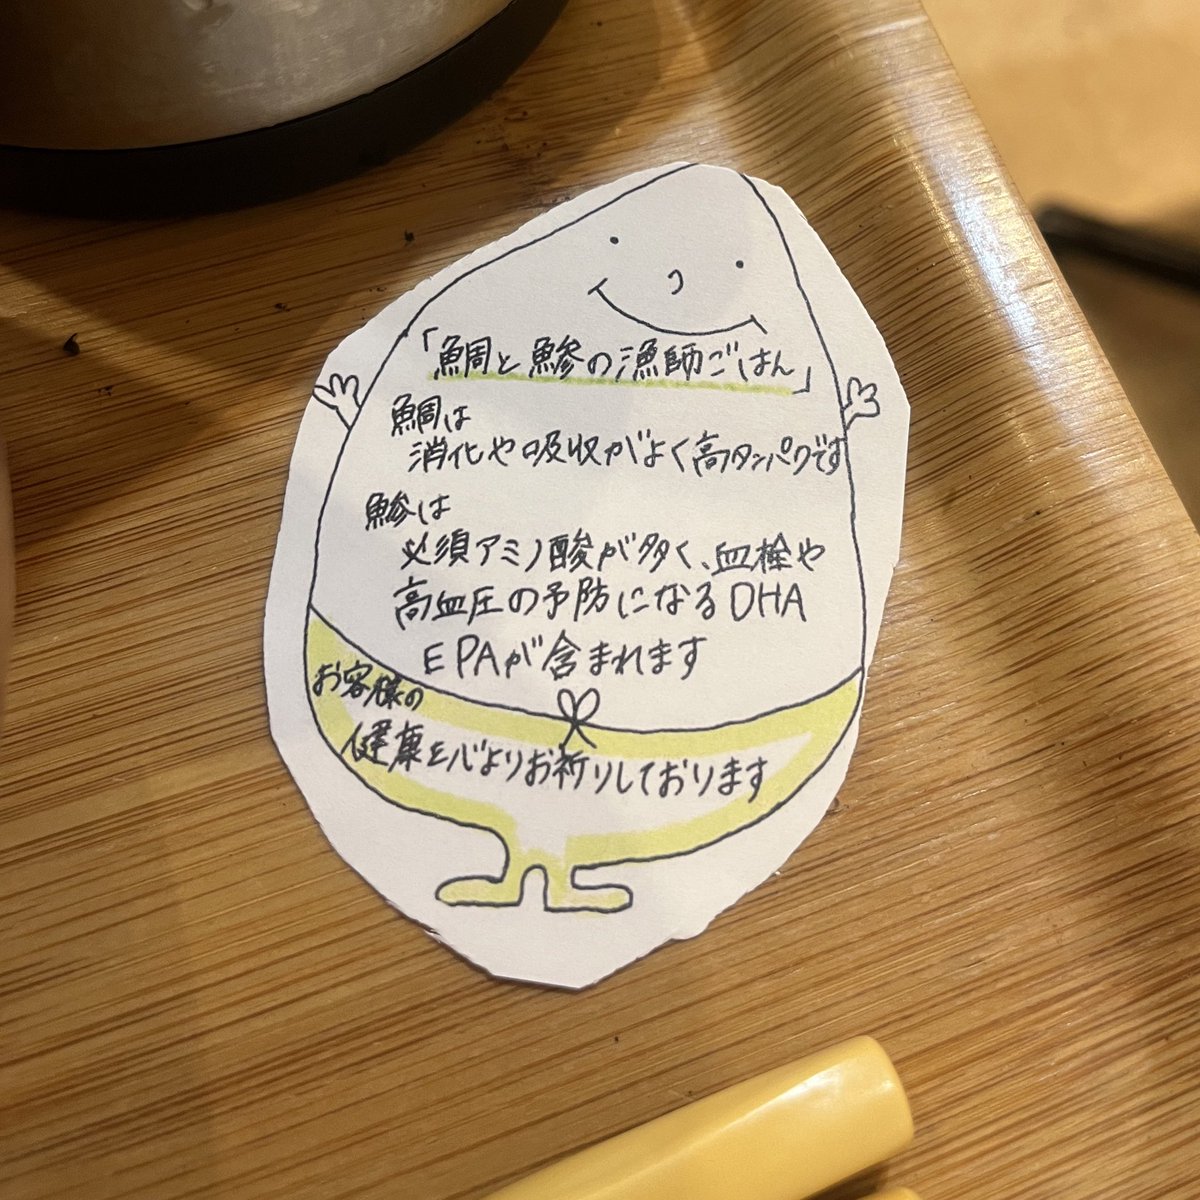 「鯛と鯵の漁師ごはん」
鯛は
消化や吸収がよく高タンパクです
鯵は
必須アミノ酸が多く、血栓や
高血圧の予防になるDHA
EPAが含まれます
お客様の
健康を心よりお祈りしております